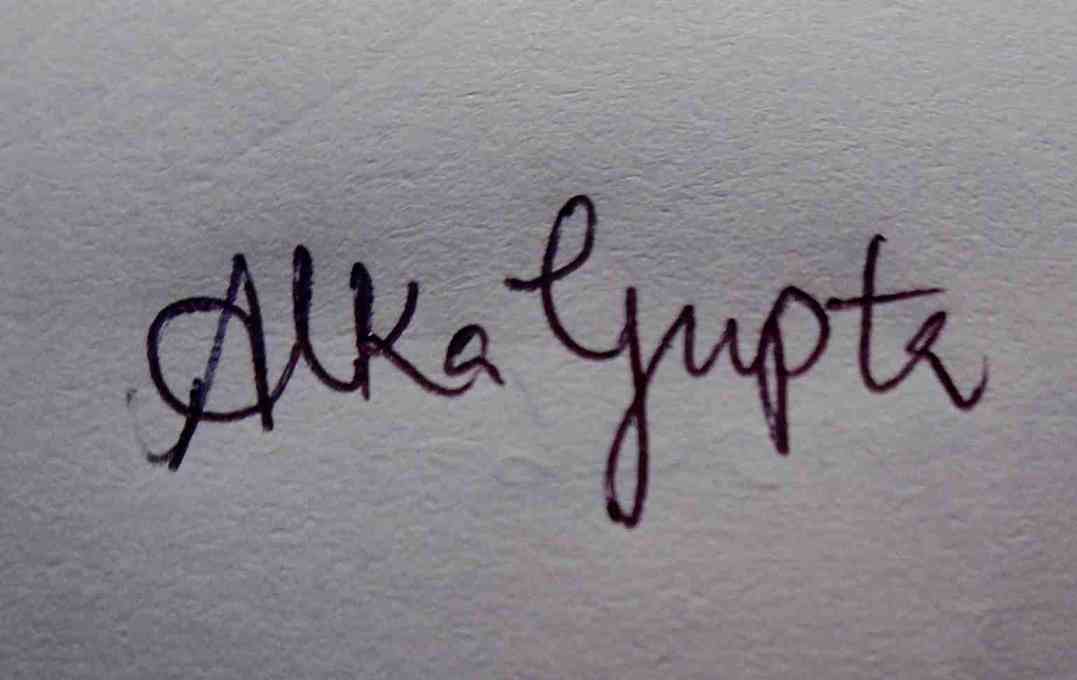 Alka Gupta